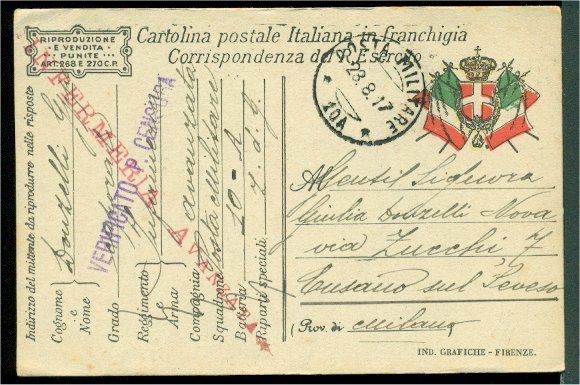 RIPRODUZIONE
E VENDITA
PUNITE
ART. 268 E 270 C.P.
Cartolina postale Italiana in franchigia
Corrispondenza del R. Esercito
POSTA MILITARE
23.8.17
10A
INFERMERIA AVANZATA
VERIFICATO P CENSURA
Indirizzo del mittente da riprodurre nelle risposte
Cognome
e
Nome
Donzelli
Grado
Reggimento
e
Arma
Infermeria
Compagnia
avanzata
Squadrone
Posta Militare
Batteria
10-A
Riparti speciali
Z. d. G.
Alla Gentil Signora
Giulia Donzelli Nova
via Zucchi 7
Cusano sul Seveso
(Prov. di Milano
IND. GRAFICHE - FIRENZE.